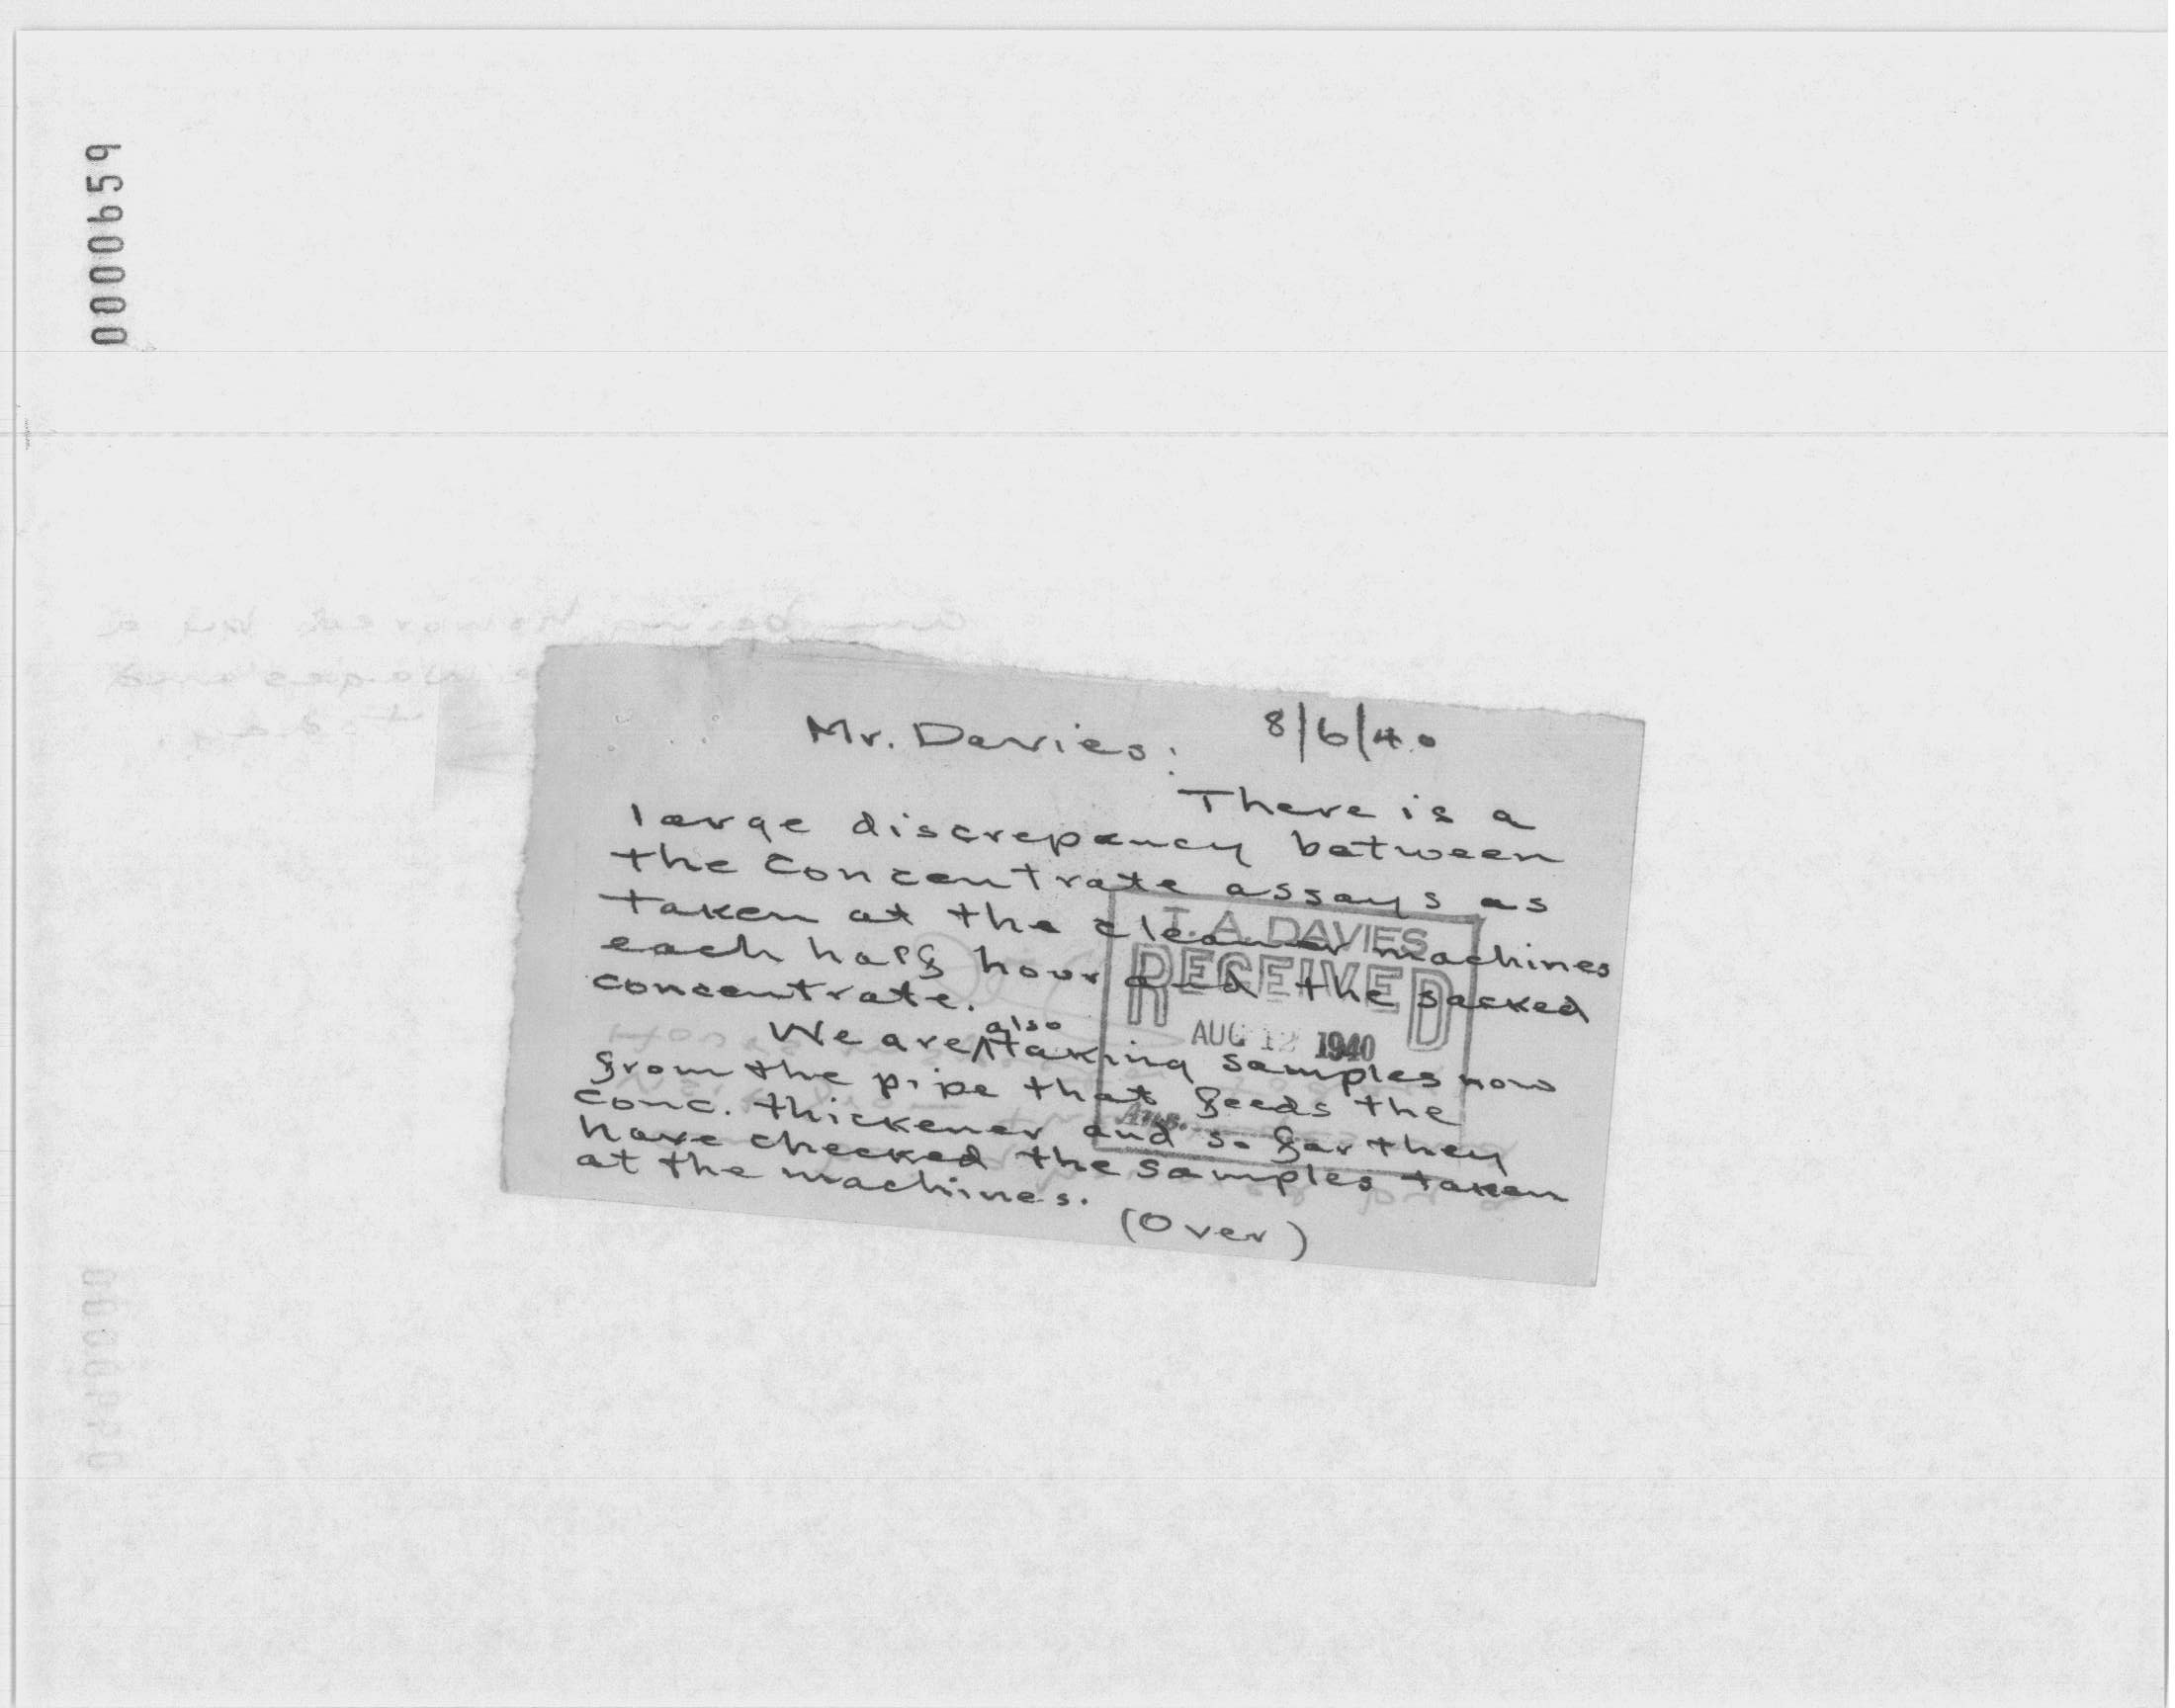 0000659
Mr. Davies: 8/6/40
There is a
large discrepancy between
the concentrate assays as
taken at the cleaner machines
each half hour and the sacked
concentrate.
We are also taking samples now
from the pipe that feeds the
conc. thickener and so far they
have checked the samples taken
at the machines.
(Over)
T. A. DAVIES
RECEIVED
AUG 12 1940
Ans.